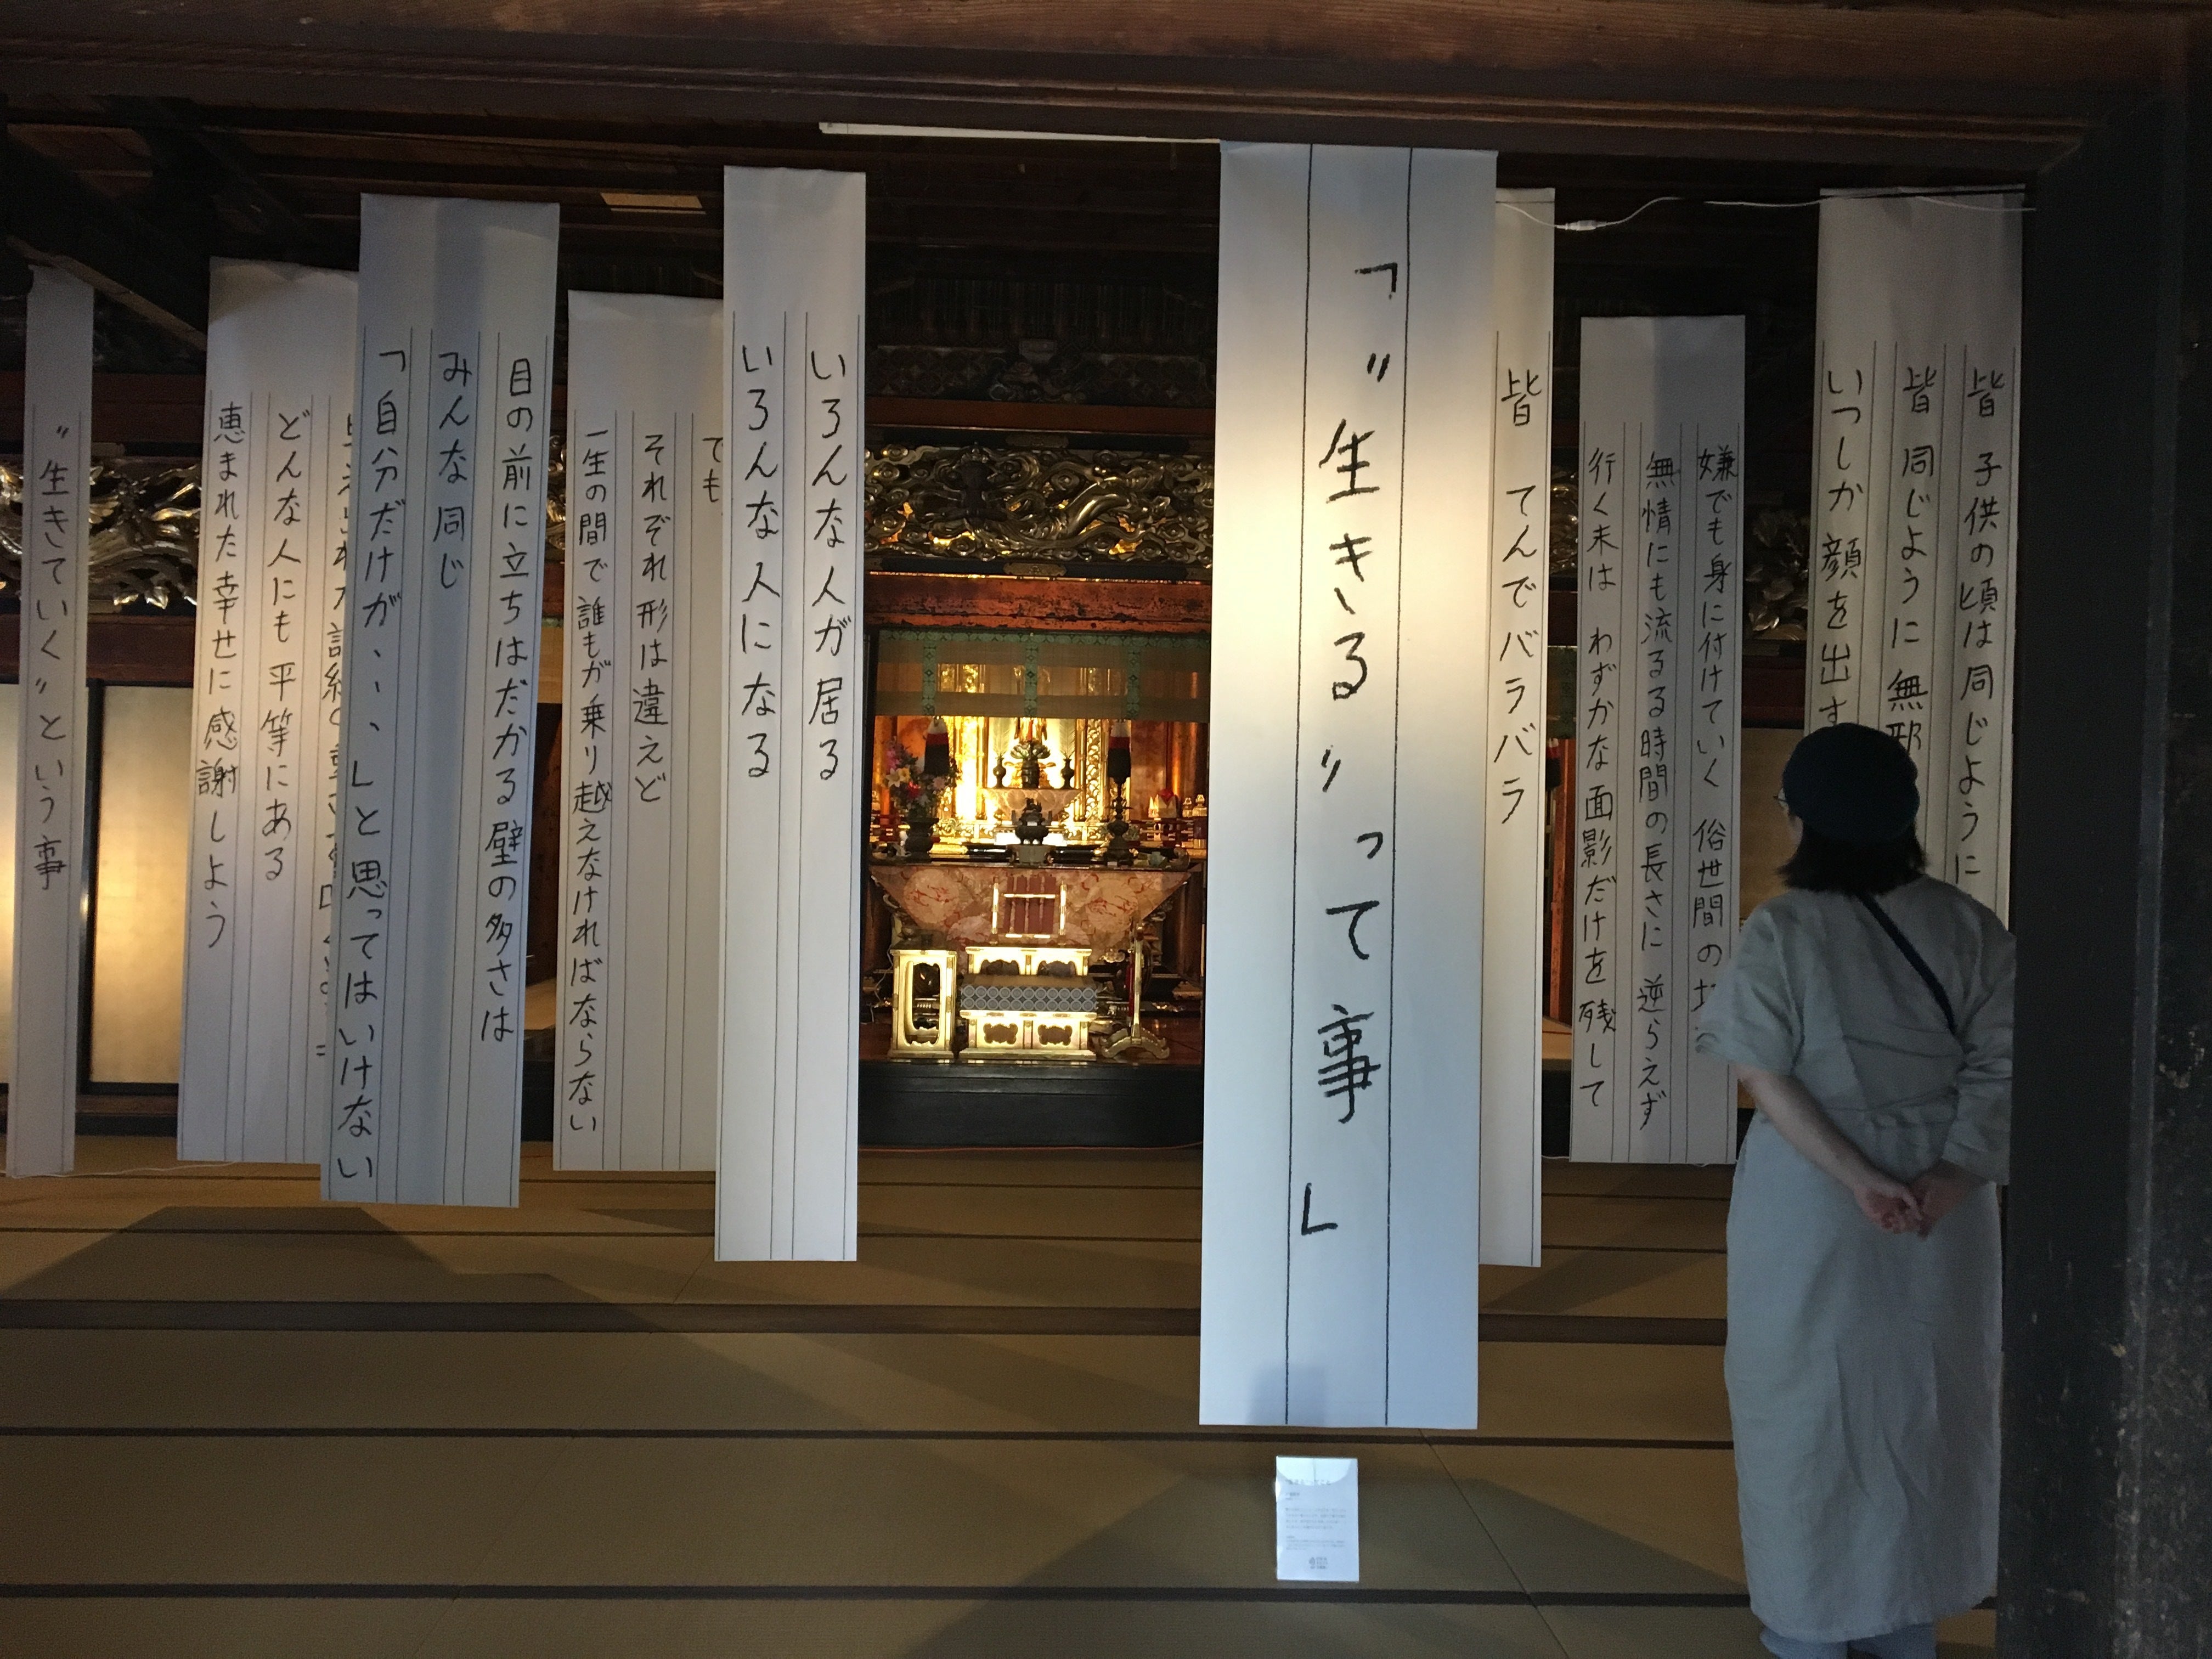 皆 子供の頃は同じように
皆 同じように 無邪
いつしか 顔を出す
嫌でも身に付けていく 俗世間の
無情にも流るる時間の長さに 逆らえず
行く末は わずかな面影だけを残して
皆 てんでバラバラ
「〝生きる〟って事」
いろんな人が居る
いろんな人になる
でも
それぞれ形は違えど
一生の間で誰もが乗り越えなければならない
目の前に立ちはだかる壁の多さは
みんな同じ
「自分だけが、、、」と思ってはいけない
どんな人にも平等にある
恵まれた幸せに感謝しよう
〝生きていく〟という事